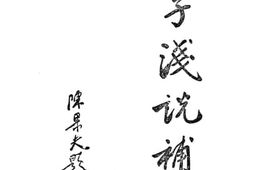 字淺說補
陳果夫題